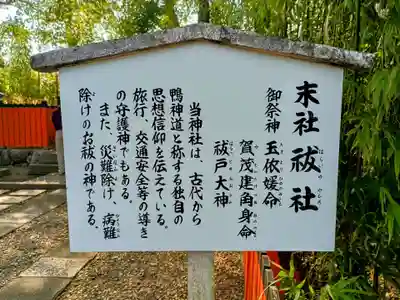 末社 祓社
御祭神 玉依媛命
賀茂建角身命
祓戸大神
当神社は、古代から
鴨神道と称する独自の
思想信仰を伝えている。
旅行、交通安全等の導き
の守護神でもある。
また、災難除け、病難
除けのお祓の神である。